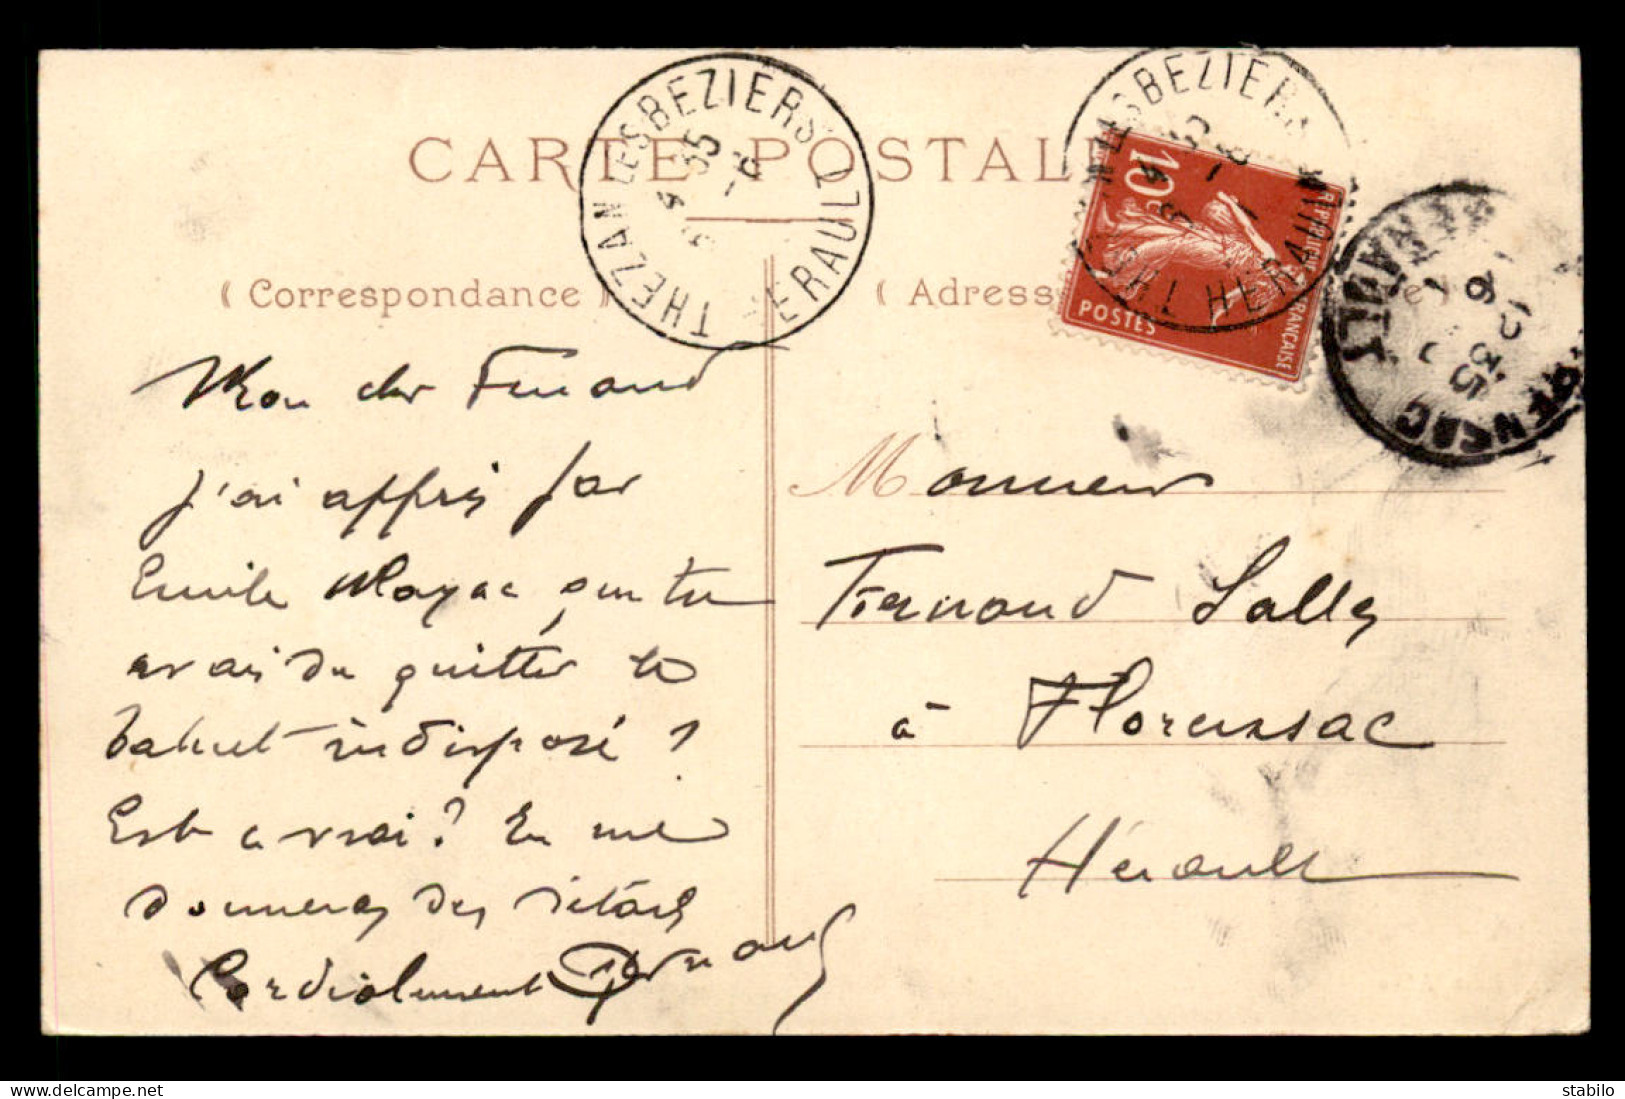 CARTE POSTALE
THEZAN LES BEZIERS HERAULT
4 35
THEZAN LES BEZIERS HERAULT
10c
POSTES
REPUBLIQUE FRANÇAISE
FLORENSAC HERAULT
12 35
( Correspondance )
( Adresse )
Mon cher Fernand
J'ai appris par
Emile Mayac que tu
avais du quitter le
bahut indisposé ?
Est ce vrai ? Tu me
donneras des détails
Cordialement
Monsieur
Fernand Salles
à Florensac
Hérault
stabilo